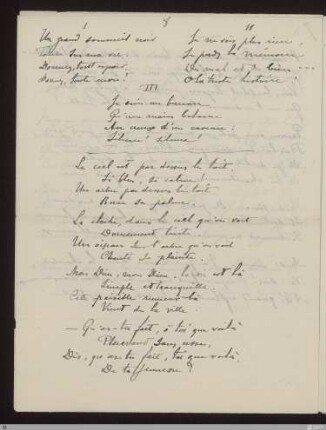 I
Un grand sommeil noir
Tombe sur ma vie :
Dormez, tout espoir,
Dormez, toute envie !
II
Je ne vois plus rien,
Je perds la mémoire
Du mal et du bien ...
O la triste histoire !
III
Je suis un berceau
Qu'une main balance
Au creux d'un caveau :
Silence ! silence !
Le ciel est par dessus le toit
Si bleu, si calme !
Un arbre par dessus le toit
Berce sa palme.
La cloche, dans le ciel qu'on voit
Doucement tinte.
Un oiseau sur l'arbre qu'on voit
Chante sa plainte.
Mon Dieu, mon Dieu, la vie est là
Simple et tranquille.
Cette paisible rumeur-là
Vient de la ville.
— Qu'as-tu fait, ô toi que voilà
Pleurant sans cesse,
Dis, qu'as-tu fait, toi que voilà,
De ta jeunesse ?